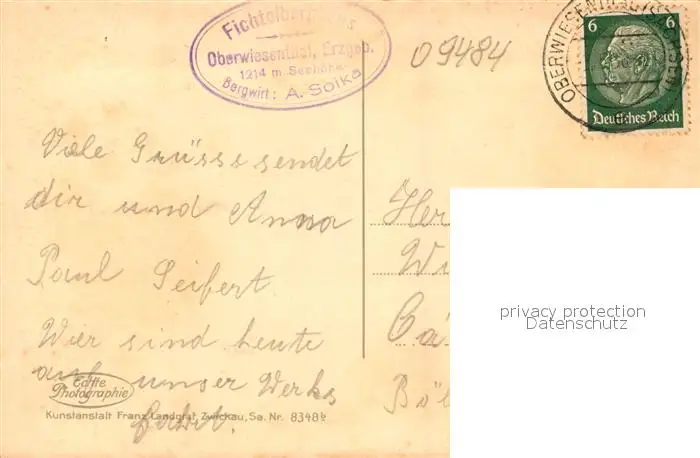 Fichtelberghaus
Oberwiesenthal, Erzgeb.
1214 m Seehöhe
Bergwirt: A. Solka
09484
OBERWIESENTHAL
6 6
Deutsches Reich
Viele Grüsse sendet
dir und Anna
Paul Seifert
Wier sind heute
auf unser Werks
fahrt.
Her
Wi
Echte
Photographie
Kunstanstalt Franz Landgraf, Zwickau, Sa. Nr. 8348b
privacy protection
Datenschutz